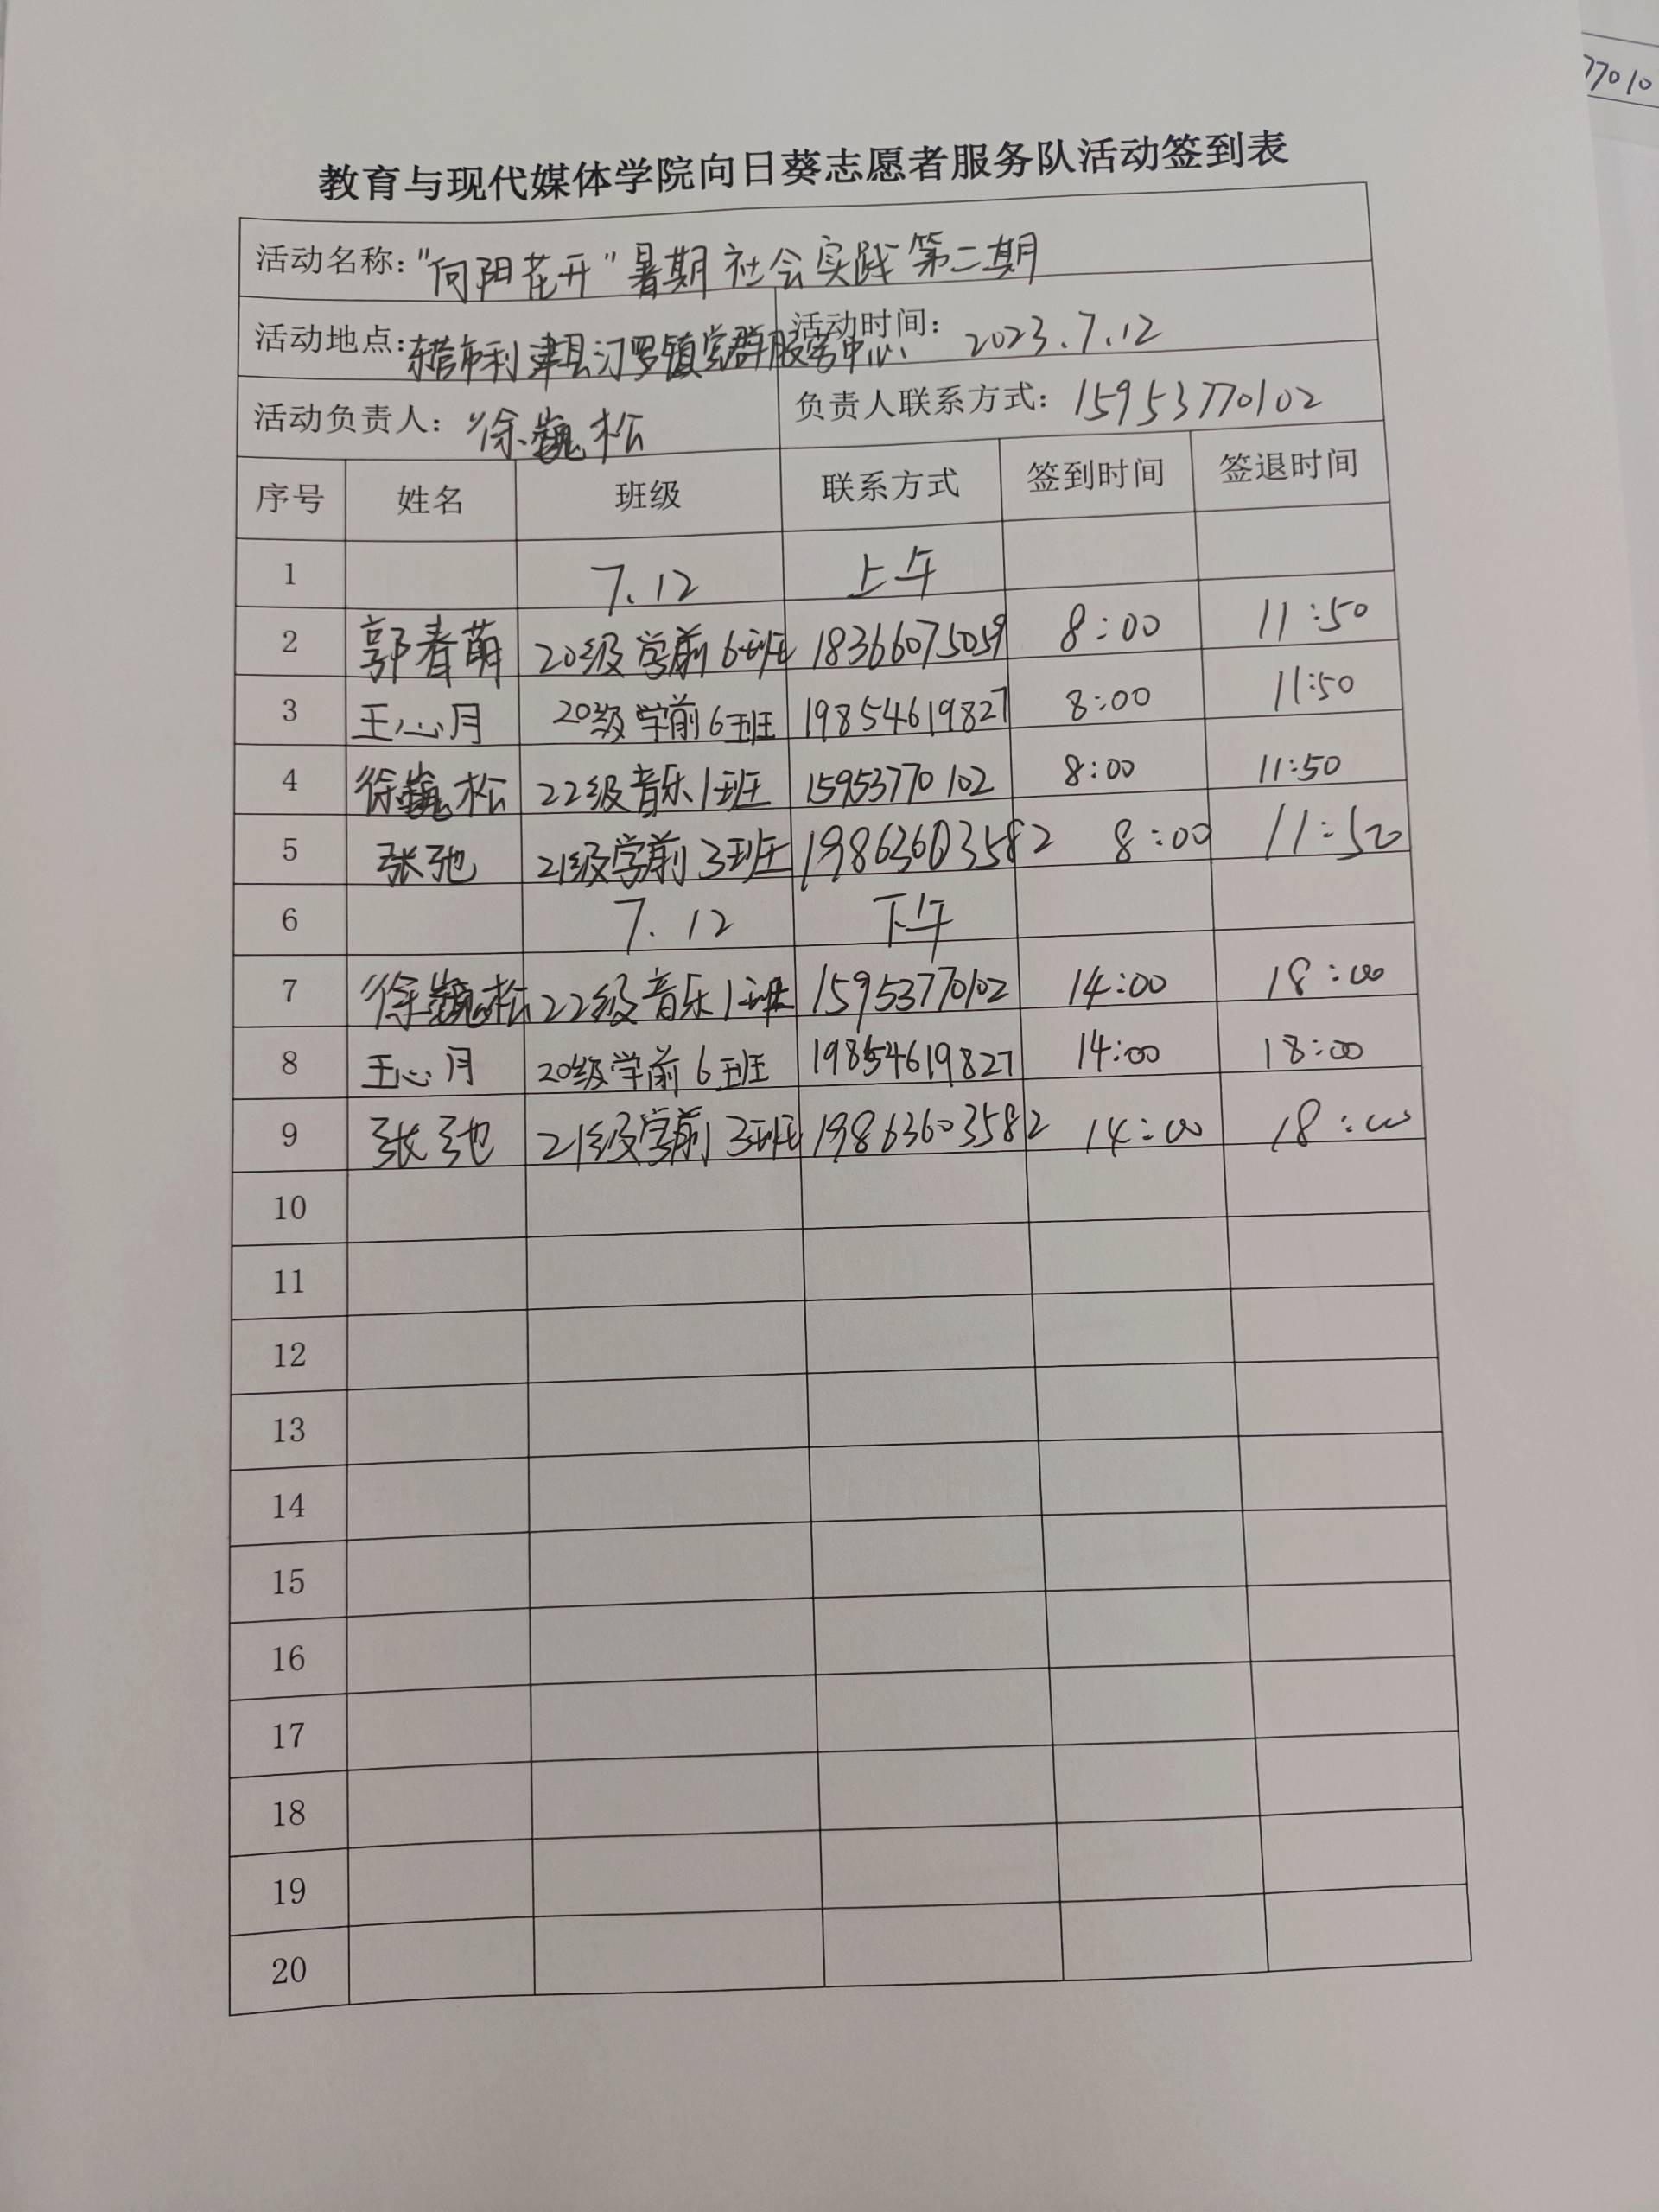 77010
教育与现代媒体学院向日葵志愿者服务队活动签到表
活动名称："向阳花开"暑期社会实践第二期
活动地点：东营市利津县汀罗镇党群服务中心 活动时间：2023.7.12
活动负责人：徐巍松 负责人联系方式：15953770102
序号 姓名 班级 联系方式 签到时间 签退时间
1 7.12 上午
2 郭春萌 20级学前6班 18366075059 8:00 11:50
3 王心月 20级学前6班 19854619827 8:00 11:50
4 徐巍松 22级音乐1班 15953770102 8:00 11:50
5 张弛 21级学前3班 19863603582 8:00 11:50
6 7.12 下午
7 徐巍松 22级音乐1班 15953770102 14:00 18:00
8 王心月 20级学前6班 19854619827 14:00 18:00
9 张弛 21级学前3班 19863603582 14:00 18:00
10
11
12
13
14
15
16
17
18
19
20